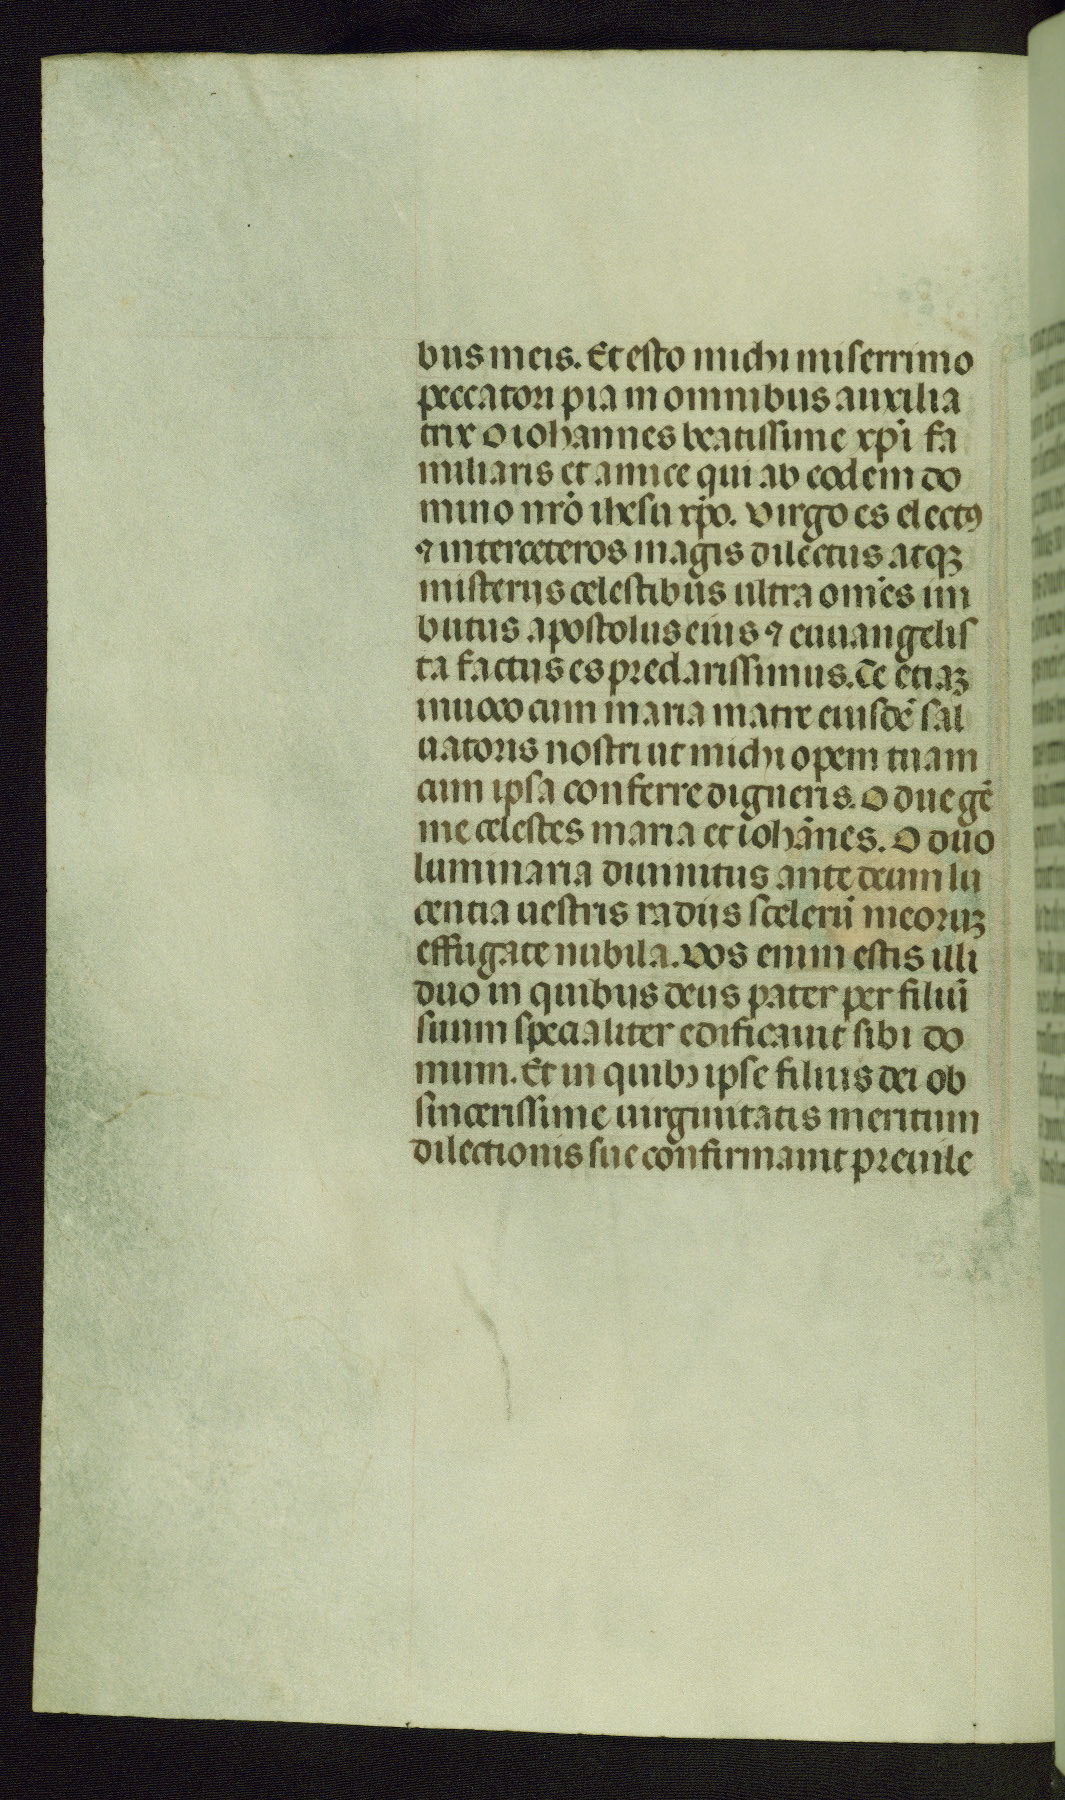 bus meis. Et esto michi miserrimo
peccatori pia in omnibus auxilia
trix o iohannes beatissime xp̄i fa
miliaris et amice qui ab eodem do
mino nr̄o ihesu xp̄o. virgo es electꝰ
⁊ inter ceteros magis dilectus atqꝫ
misteriis celestibus ultra om̄es im
butus apostolus eius ⁊ euuangelis
ta factus es preclarissimus. Te etiaꝫ
inuoco cum maria matre eiusdē sal
uatoris nostri ut michi opem tuam
cum ipsa conferre digneris. O due gē
me celestes maria et iohān̄es. O duo
luminaria diuinitus ante deum lu
centia uestris radiis scelerū meoruꝫ
effugate nubila. vos enim estis illi
duo in quibus deus pater per filiū
suum specialiter edificauit sibi do
mum. Et in quibꝫ ipse filius dei ob
sincerissime uirginitatis meritum
dilectionis sue confirmauit preuile